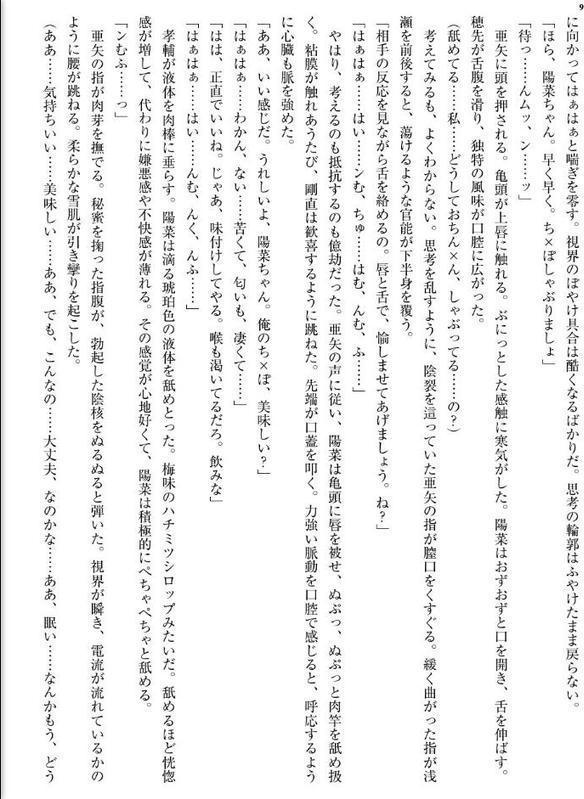 9
に向かってはぁはぁと喘ぎを零す。視界のぼやけ具合は酷くなるばかりだ。思考の輪郭はふやけたまま戻らない。
「ほら、陽菜ちゃん。早く早く。ち×ぽしゃぶりましょ」
「待っ……んムッ、ン……ッ」
亜矢に頭を押される。亀頭が上唇に触れる。ぷにっとした感触に寒気がした。陽菜はおずおずと口を開き、舌を伸ばす。
穂先が舌腹を滑り、独特の風味が口腔に広がった。
(舐めてる……私……どうしておちん×ん、しゃぶってる……の？)
考えてみるも、よくわからない。思考を乱すように、陰裂を這っていた亜矢の指が膣口をくすぐる。緩く曲がった指が浅
瀬を前後すると、蕩けるような官能が下半身を覆う。
「相手の反応を見ながら舌を絡めるの。唇と舌で、愉しませてあげましょう。ね？」
「はぁはぁ……はい……ンむ、ちゅ……はむ、んむ、ふ……」
やはり、考えるのも抵抗するのも億劫だった。亜矢の声に従い、陽菜は亀頭に唇を被せ、ぬぷっ、ぬぷっと肉竿を舐め扱
く。粘膜が触れあうたび、剛直は歓喜するように跳ねた。先端が口蓋を叩く。力強い脈動を口腔で感じると、呼応するよう
に心臓も脈を強めた。
「ああ、いい感じだ。うれしいよ、陽菜ちゃん。俺のち×ぽ、美味しい？」
「はぁはぁ……わかん、ない……苦くて、匂いも、凄くて……」
「はは、正直でいいね。じゃあ、味付けしてやる。喉も渇いてるだろ。飲みな」
「はぁはぁ……はい……んむ、んく、んふ……」
孝輔が液体を肉棒に垂らす。陽菜は滴る琥珀色の液体を舐めとった。梅味のハチミツシロップみたいだ。舐めるほど恍惚
感が増して、代わりに嫌悪感や不快感が薄れる。その感覚が心地好くて、陽菜は積極的にぺちゃぺちゃと舐める。
「ンむふ……っ」
亜矢の指が肉芽を撫でる。秘蜜を掬った指腹が、勃起した陰核をぬるぬると弾いた。視界が瞬き、電流が流れているかの
ように腰が跳ねる。柔らかな雪肌が引き攣りを起こした。
(ああ……気持ちいい……美味しい……ああ、でも、こんなの……大丈夫、なのかな……ああ、眠い……なんかもう、どう